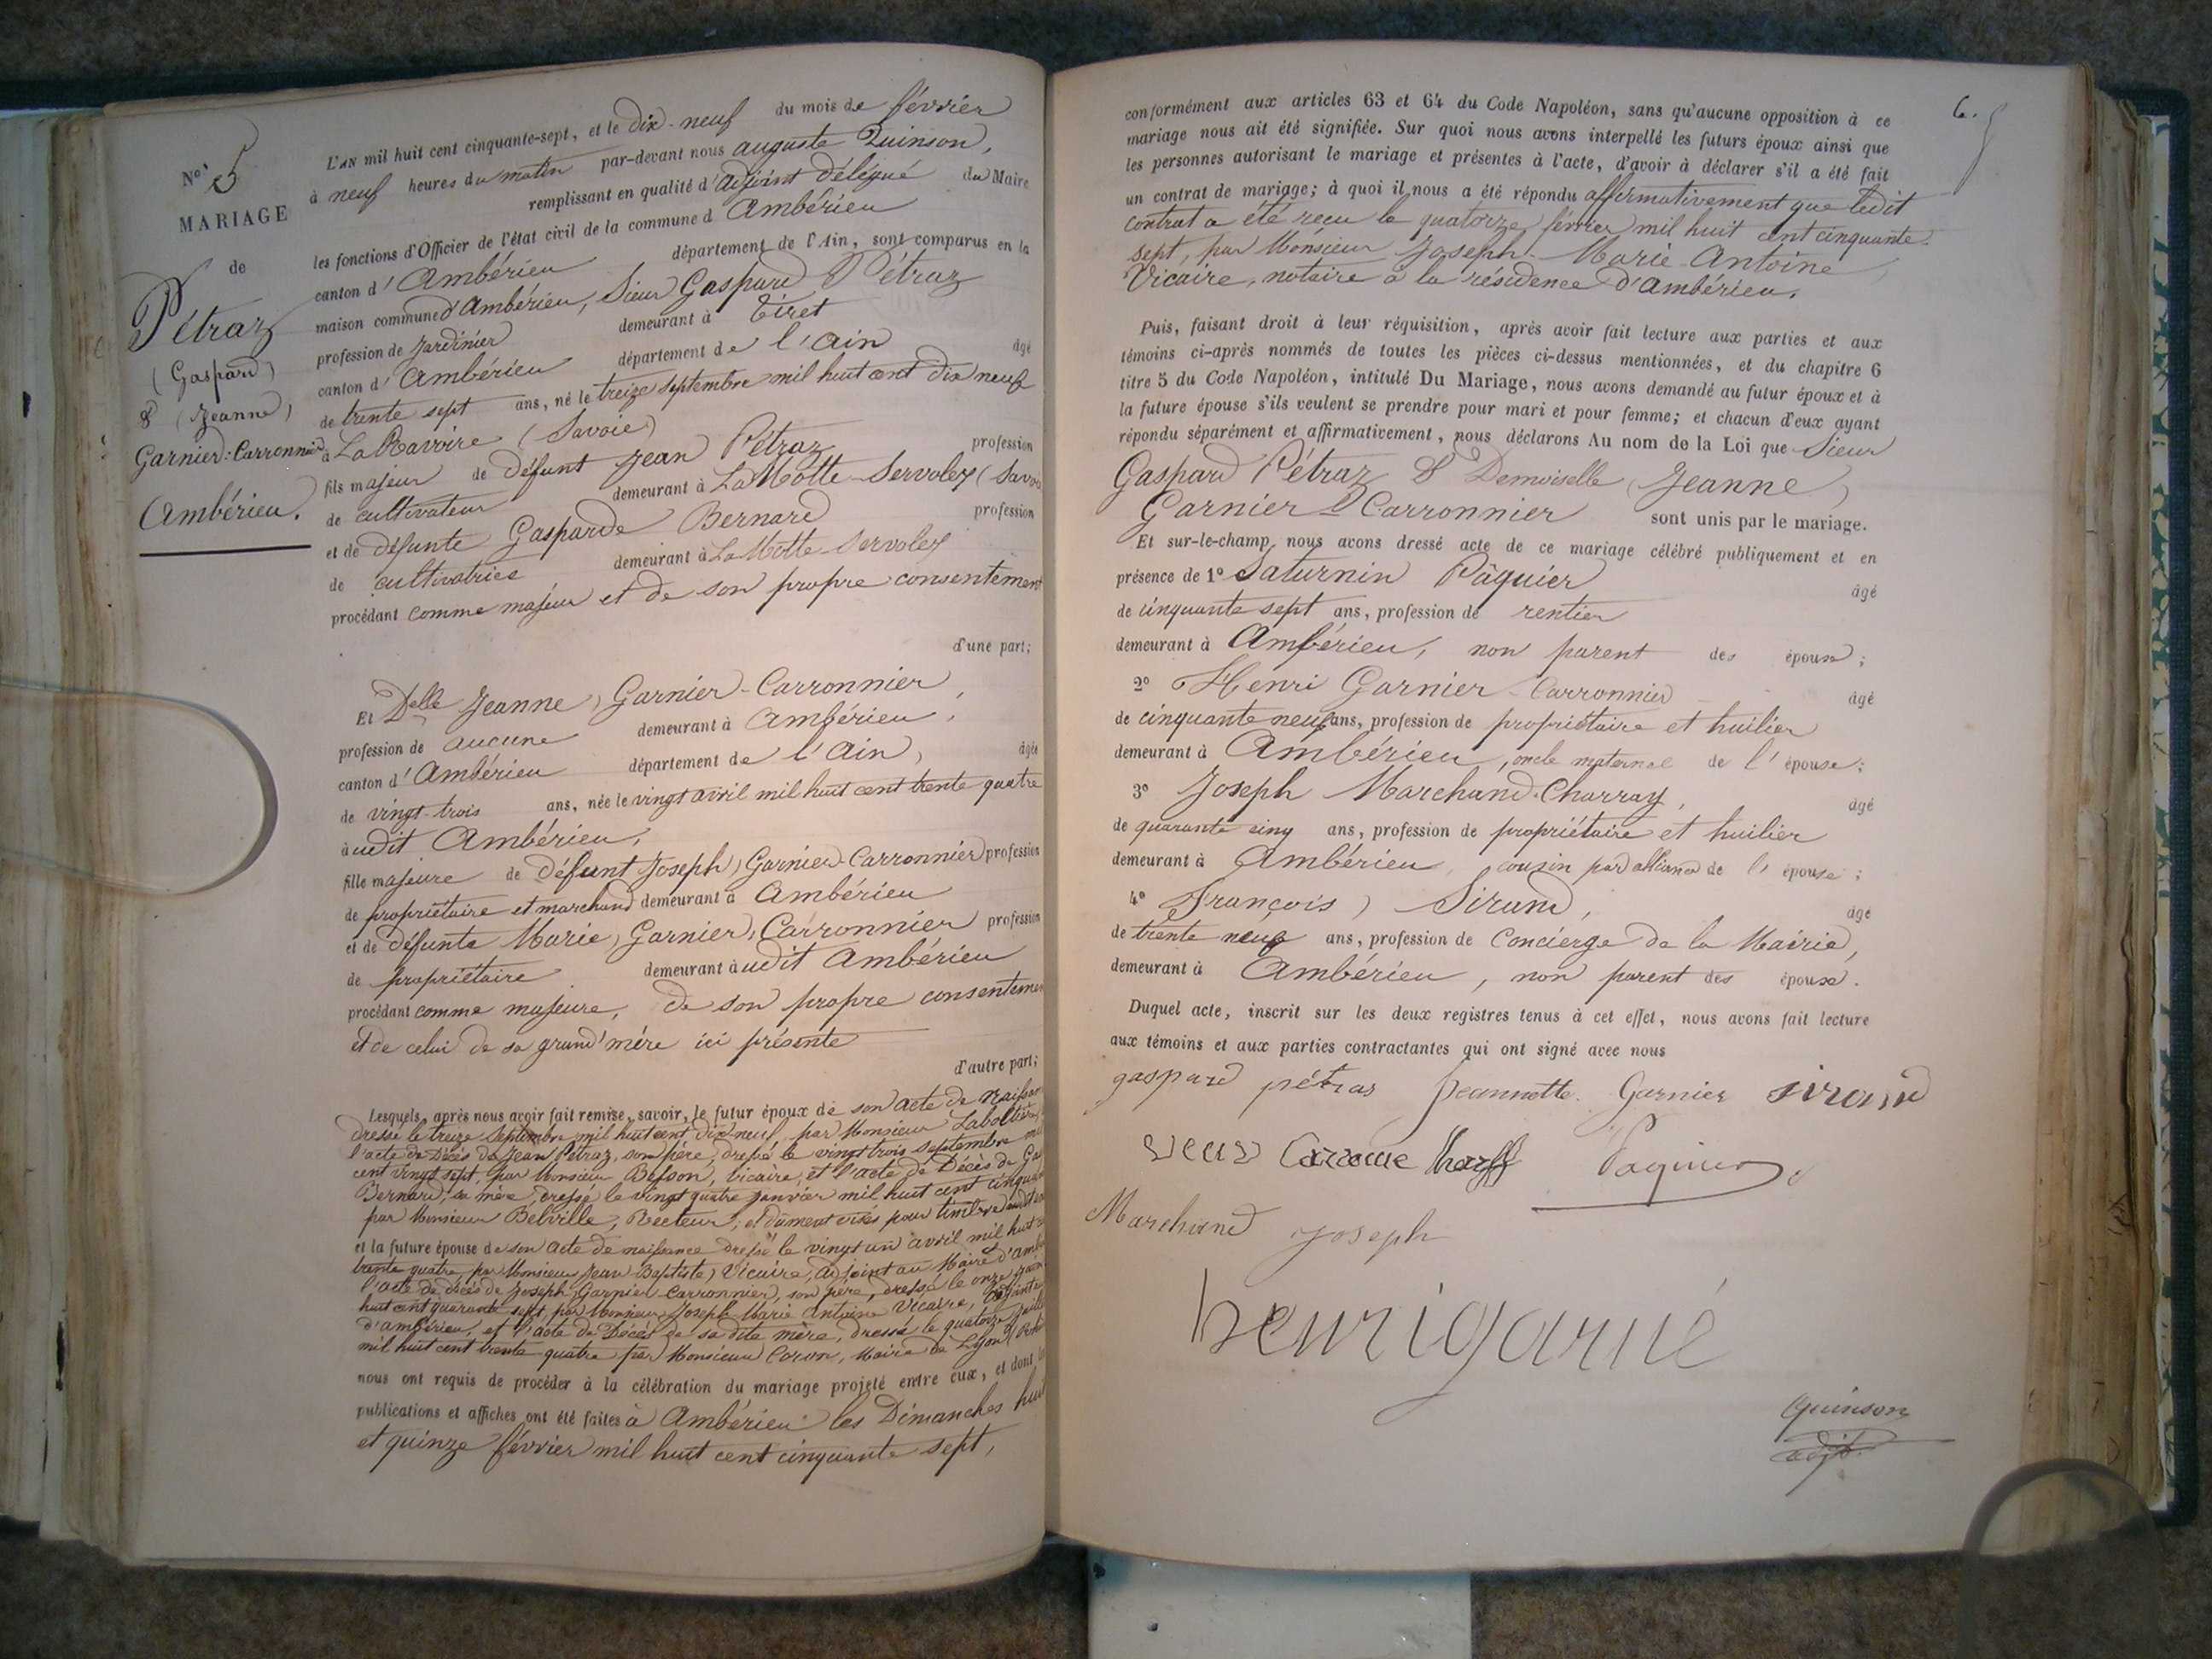 N° 5
MARIAGE
de
Pétraz
(Gaspard)
& (Jeanne)
Garnier-Carronnier
Ambérieu.
L'AN mil huit cent cinquante-sept, et le dix-neuf du mois de février
à neuf heures du matin par-devant nous auguste Quinson,
remplissant en qualité d'adjoint délégué du Maire
les fonctions d'Officier de l'état civil de la commune d Ambérieu
canton d'Ambérieu département de l'Ain, sont comparus en la
maison commune d'Ambérieu, Sieur Gaspard Pétraz
profession de Jardinier demeurant à Tiret
canton d'Ambérieu département de l'ain âgé
de trente sept ans, né le treize septembre mil huit cent dix neuf
à La Ravoire (Savoie)
fils majeur de défunt Jean Pétraz profession
de cultivateur demeurant à La Motte-Servolex (Savoie
et de défunte Gasparde Bernard profession
de cultivatrice demeurant à La Motte-Servolex
procédant comme majeur et de son propre consentement
d'une part;
Et Delle Jeanne Garnier-Carronnier,
profession de aucune demeurant à Ambérieu,
canton d'Ambérieu département de l'Ain, âgée
de vingt-trois ans, née le vingt avril mil huit cent trente quatre
audit Ambérieu,
fille majeure de défunt Joseph Garnier-Carronnier profession
de propriétaire et marchand demeurant à Ambérieu
et de défunte Marie Garnier-Carronnier profession
de propriétaire demeurant à udit Ambérieu
procédant comme majeure, de son propre consentemen
et de celui de sa grand'mère ici présente
d'autre part;
Lesquels, après nous avoir fait remise, savoir, le futur époux de son acte de naissan
dressé le treize septembre mil huit cent dix-neuf par Monsieur
l'acte de décès de Jean Pétraz, son père, dressé le vingt trois septembre mil
cent vingt sept, par Monsieur Besson, vicaire, et l'acte de Décès de Ga
Bernard, sa mère, dressé le vingt quatre janvier mil huit cent cinquan
par Monsieur Belville, Recteur, et dûment visés pour timbre
et la future épouse de son acte de naissance dressé le vingt un avril mil huit
trente quatre par Monsieur Jean Baptiste Vicaire, adjoint au Maire d'amb
l'acte de décès de Joseph Garnier-Carronnier, son père, dressé le onze
huit cent quarante sept, par Monsieur Joseph Marie Antoine Vicaire, adjoint
d'ambérieu, et l'acte de Décès de sa dite mère, dressé le quatorze
mil huit cent trente quatre par Monsieur Maire de Lyon
nous ont requis de procéder à la célébration du mariage projeté entre eux, et dont
publications et affiches ont été faites à Ambérieu les Dimanches huit
et quinze février mil huit cent cinquante sept,
6.
conformément aux articles 63 et 64 du Code Napoléon, sans qu'aucune opposition à ce
mariage nous ait été signifiée. Sur quoi nous avons interpellé les futurs époux ainsi que
les personnes autorisant le mariage et présentes à l'acte, d'avoir à déclarer s'il a été fait
un contrat de mariage; à quoi il nous a été répondu affirmativement que ledit
contrat a été reçu le quatorze février mil huit cent cinquante-
sept, par Monsieur Joseph-Marie Antoine
Vicaire, notaire à la résidence d'Ambérieu.
Puis, faisant droit à leur réquisition, après avoir fait lecture aux parties et aux
témoins ci-après nommés de toutes les pièces ci-dessus mentionnées, et du chapitre 6
titre 5 du Code Napoléon, intitulé Du Mariage, nous avons demandé au futur époux et à
la future épouse s'ils veulent se prendre pour mari et pour femme; et chacun d'eux ayant
répondu séparément et affirmativement, nous déclarons Au nom de la Loi que Sieur
Gaspard Pétraz & Demoiselle Jeanne
Garnier Carronnier sont unis par le mariage.
Et sur-le-champ nous avons dressé acte de ce mariage célébré publiquement et en
présence de 1° Saturnin Pâquier âgé
de cinquante sept ans, profession de rentier
demeurant à Ambérieu, non parent des époux;
2° Henri Garnier-Carronnier âgé
de cinquante neuf ans, profession de propriétaire et huilier
demeurant à Ambérieu, oncle maternel de l'épouse;
3° Joseph Marchand-Charray, âgé
de quarante cinq ans, profession de propriétaire et huilier
demeurant à Ambérieu, cousin par alliance de l'épouse;
4° François Sirand, âgé
de trente neuf ans, profession de Concierge de la Mairie,
demeurant à Ambérieu, non parent des époux.
Duquel acte, inscrit sur les deux registres tenus à cet effet, nous avons fait lecture
aux témoins et aux parties contractantes qui ont signé avec nous
gaspard pétras Jeannette Garnier sirand
Paquier
Marchand Joseph
henrigarnié
Quinson
adjt.